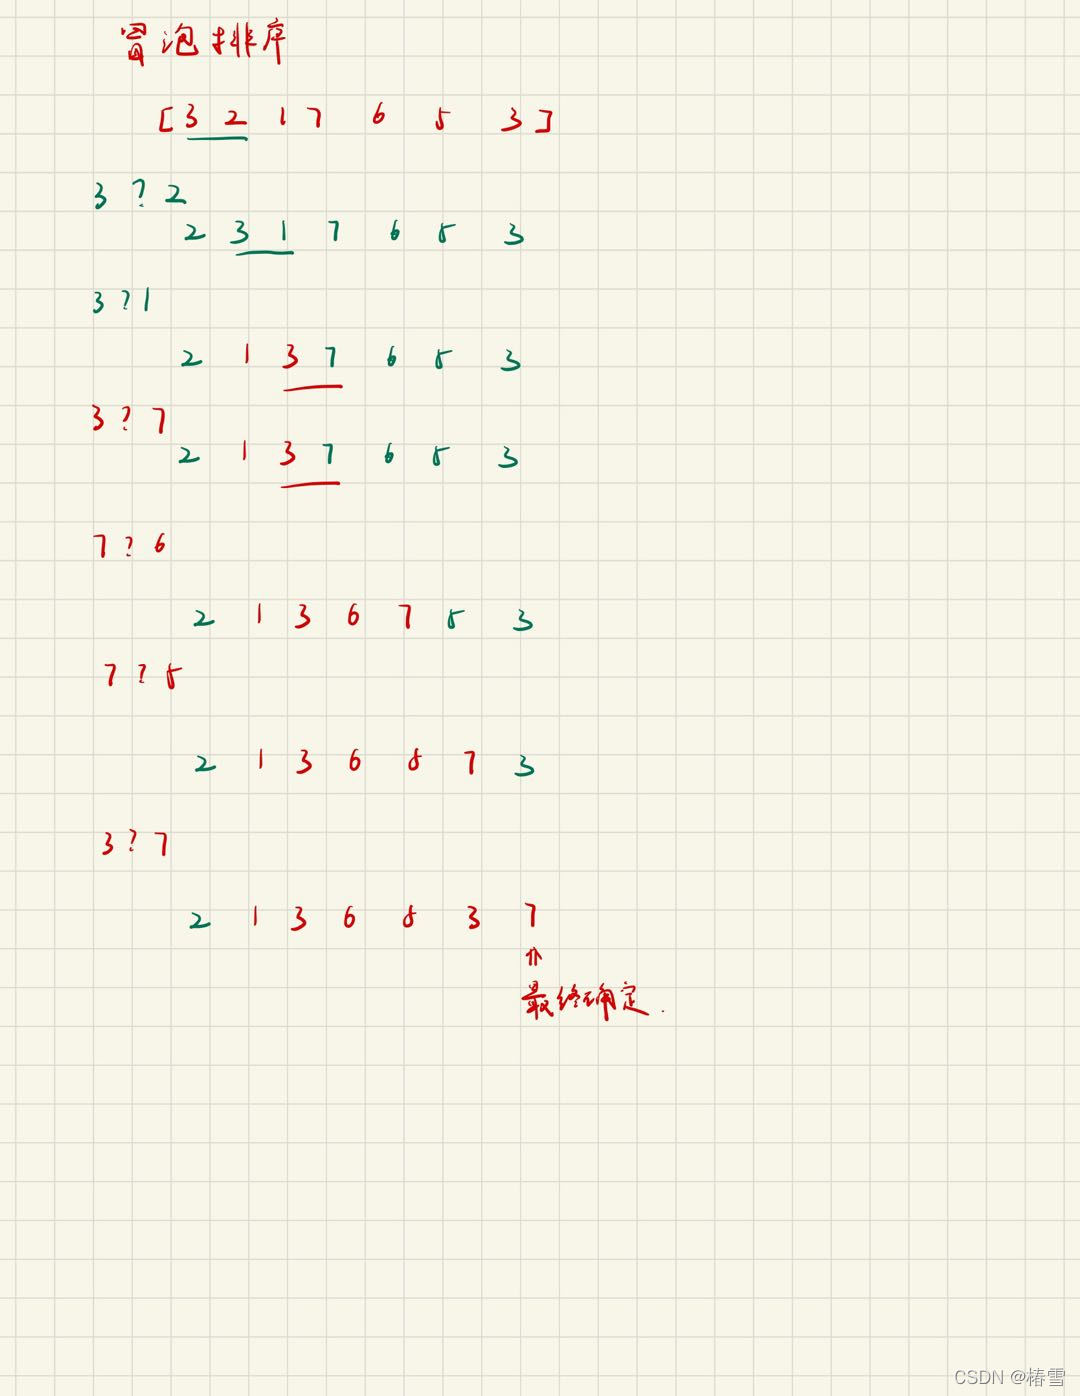 冒泡排序
[3 2 1 7 6 5 3]
3 ? 2
2 3 1 7 6 5 3
3 ? 1
2 1 3 7 6 5 3
3 ? 7
2 1 3 7 6 5 3
7 ? 6
2 1 3 6 7 5 3
7 ? 5
2 1 3 6 5 7 3
3 ? 7
2 1 3 6 5 3 7
⇑
最终确定.
CSDN @椿雪